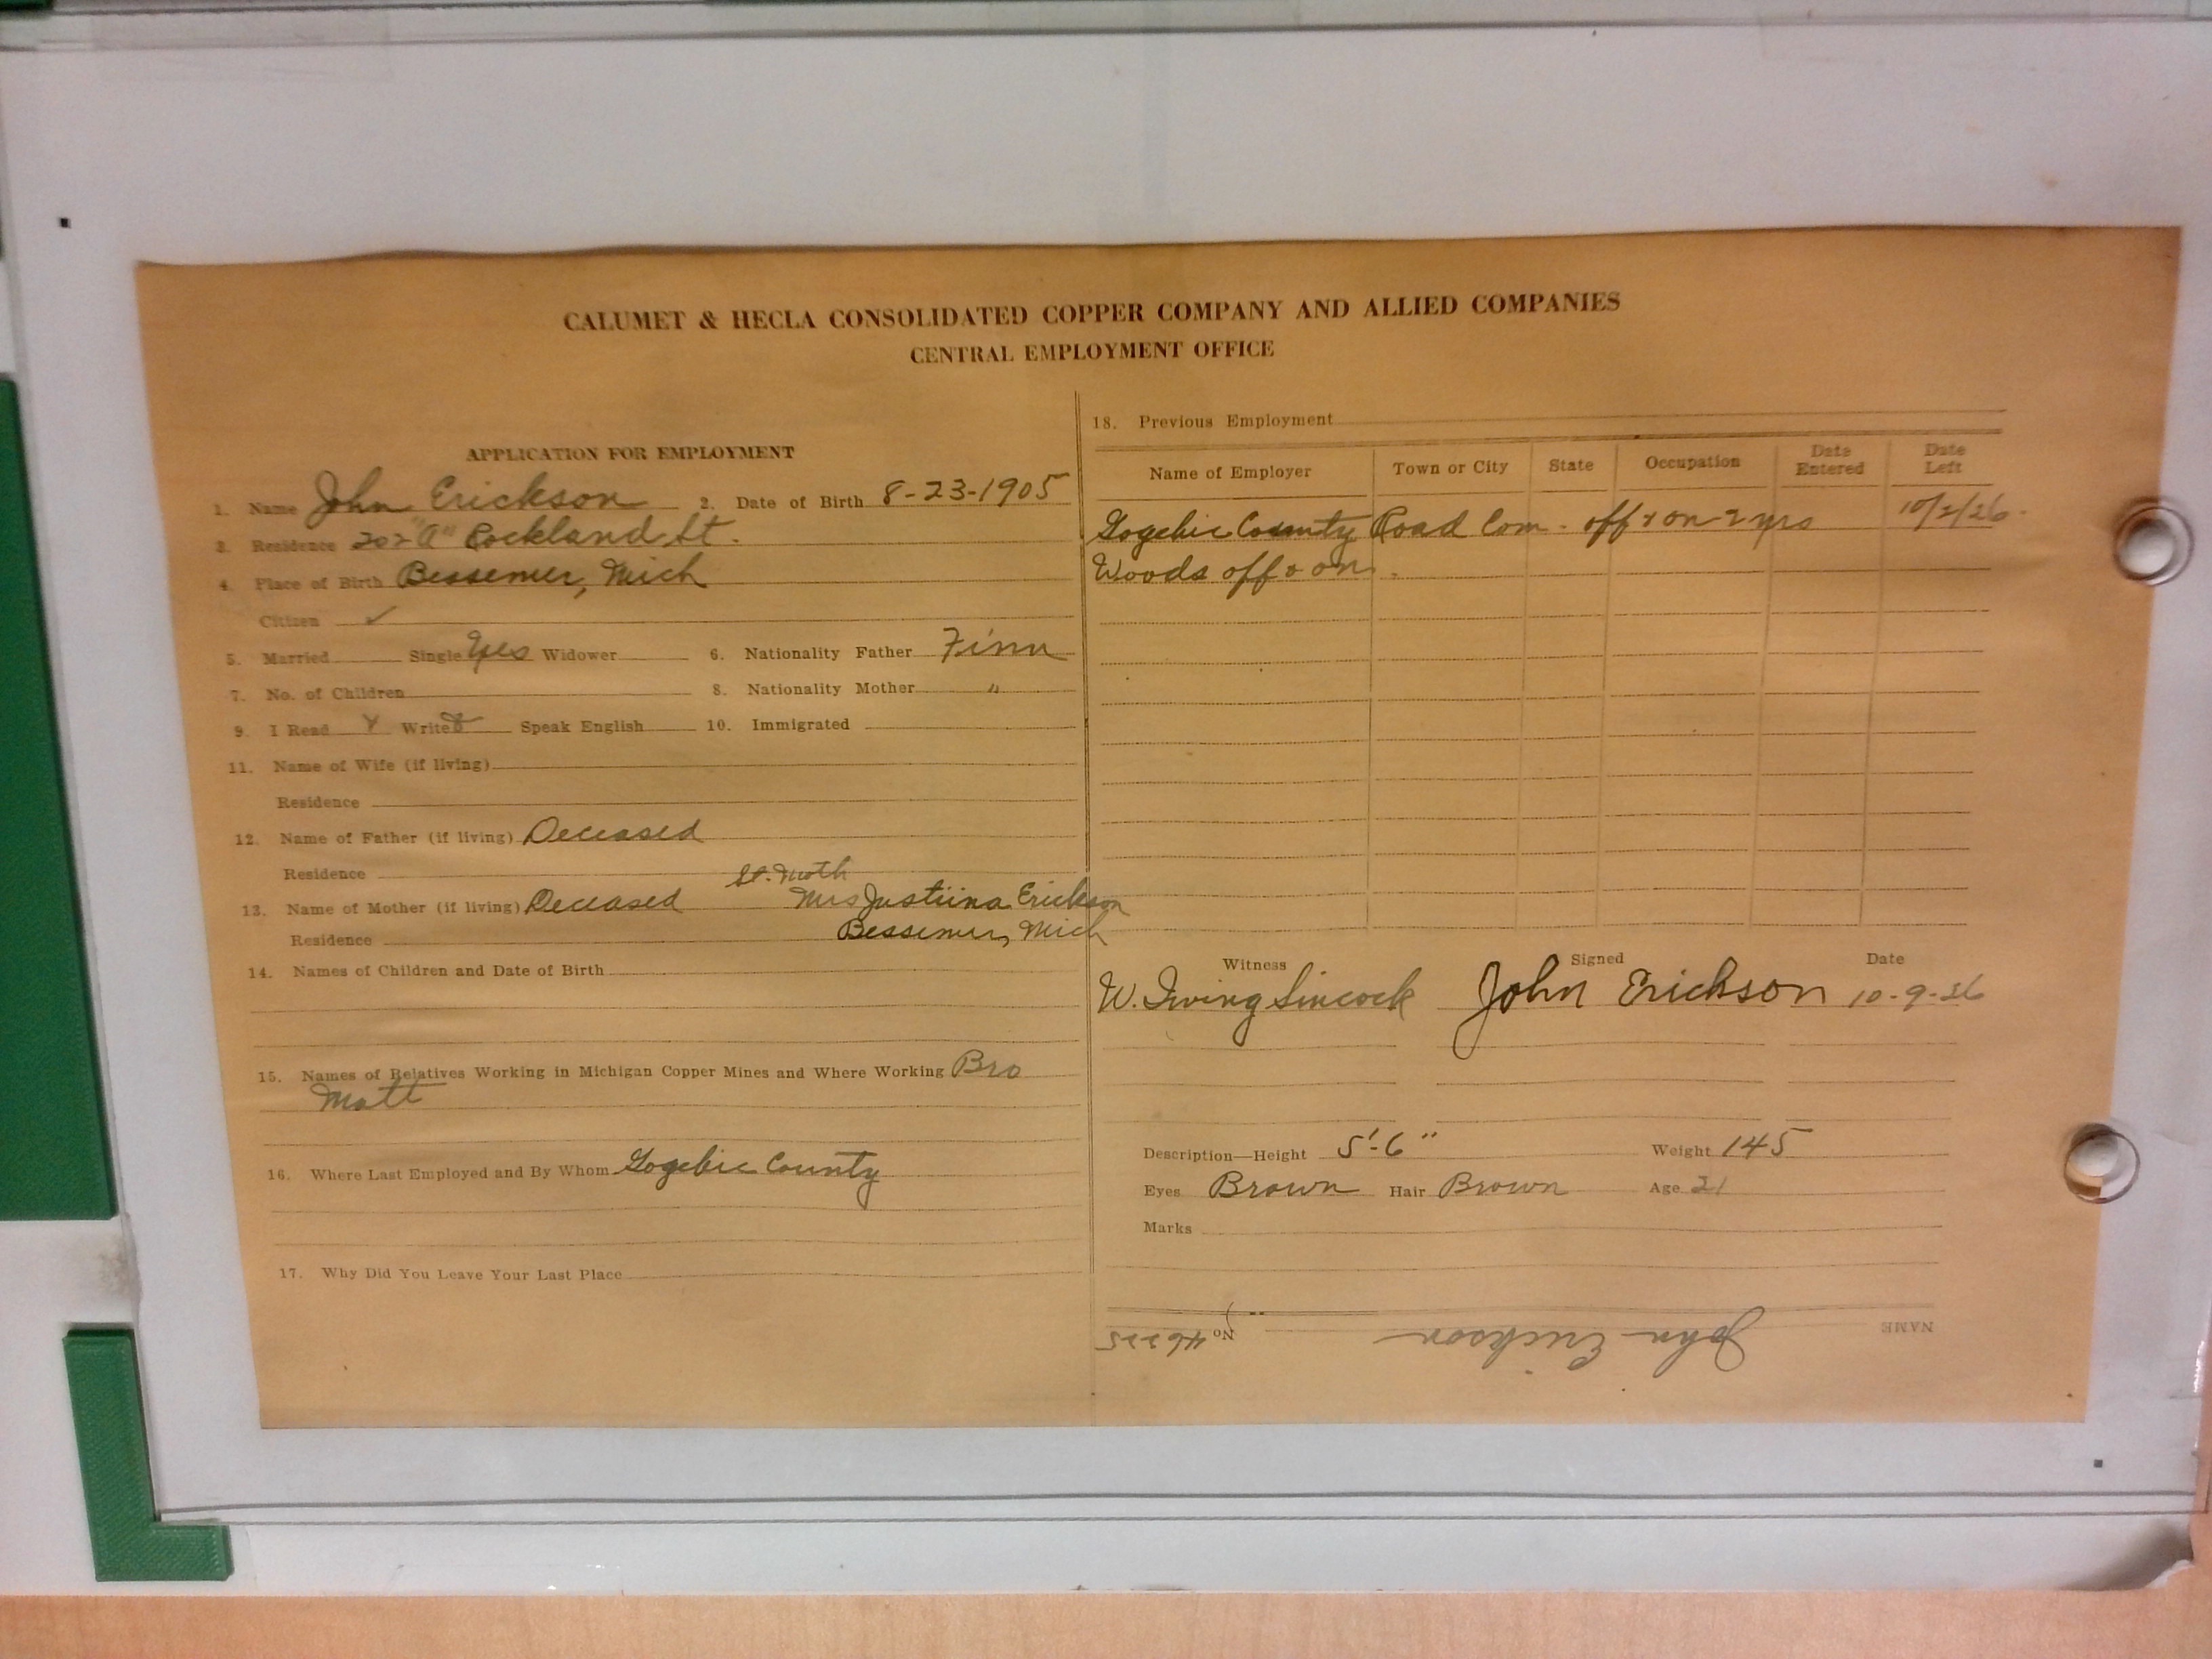 CALUMET & HECLA CONSOLIDATED COPPER COMPANY AND ALLIED COMPANIES
CENTRAL EMPLOYMENT OFFICE
APPLICATION FOR EMPLOYMENT
1. Name John Erickson 2. Date of Birth 8-23-1905
3. Residence 202 "A" Rockland St.
4. Place of Birth Bessemer, Mich
Citizen ✓
5. Married Single Yes Widower 6. Nationality Father Finn
7. No. of Children 8. Nationality Mother "
9. I Read Write Speak English 10. Immigrated
11. Name of Wife (if living)
Residence
12. Name of Father (if living) Deceased
Residence
St. Moth
13. Name of Mother (if living) Deceased Mrs Justiina Erickson
Residence Bessemer, Mich
14. Names of Children and Date of Birth
15. Names of Relatives Working in Michigan Copper Mines and Where Working Bro
Matt
16. Where Last Employed and By Whom Gogebic County
17. Why Did You Leave Your Last Place
18. Previous Employment
Name of Employer Town or City State Occupation Date Entered Date Left
Gogebic County Road Com. off & on 2 yrs 10/2/26
Woods off & on
Witness Signed Date
W. Irving Sincock John Erickson 10-9-26
Description—Height 5'-6" Weight 145
Eyes Brown Hair Brown Age 21
Marks
NAME John Erickson No 46225